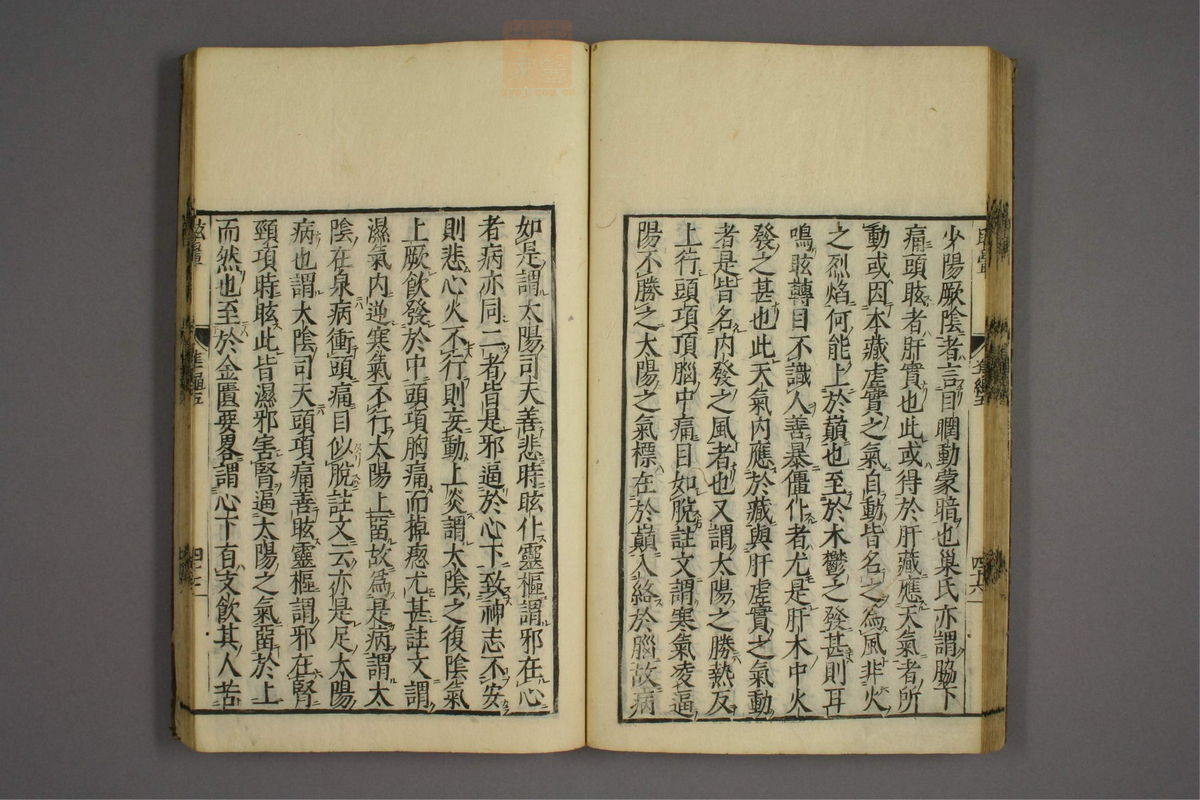 少陽厥陰者言目瞤動蒙暗也巢氏亦謂脇下
痛頭眩者肝實也此或得於肝藏應天氣者所
動或因本藏虛實之氣自動皆名之為風非火
之烈焰何能上於巔也至於木鬱之發甚則耳
鳴眩轉目不識人善暴僵仆者尤是肝木中火
發之甚也此天氣內應於藏與肝虛實之氣動
者是皆名內發之風者也又謂太陽之勝熱反
上行頭項頂腦中痛目如脫註文謂寒氣凌逼
陽不勝之太陽之氣標在於巔入絡於腦故病
如是謂太陽司天善悲時眩仆靈樞謂邪在心
者病亦同二者皆是邪逼於心下致神志不安
則悲心火不行則妄動上炎謂太陰之復陰氣
上厥飲發於中頭項胸痛而掉瘛尤甚註文謂
濕氣內逆寒氣不行太陽上留故為是病謂太
陰在泉病衝頭痛目似脫註文云亦是足太陽
病也謂太陰司天頭項痛善眩靈樞謂邪在腎
頸項時眩此皆濕邪害腎逼太陽之氣留於上
而然也至於金匱要畧謂心下百支飲其人苦
眩暈